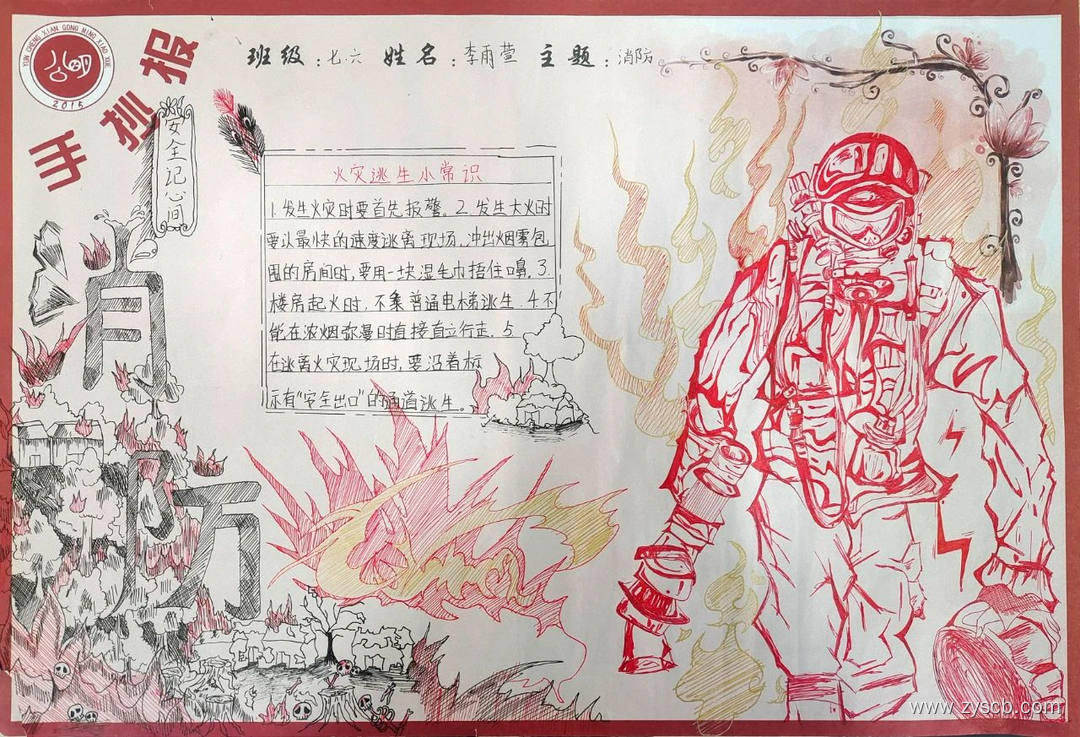 YUN CHENG XIAN GONG MING XIAO XUE
公明
2015
手抄报
班级：七.六 姓名：李雨萱 主题：消防
安全记心间
消防
火灾逃生小常识
1.发生火灾时要首先报警. 2.发生大火时
要以最快的速度逃离现场.冲出烟雾包
围的房间时,要用一块湿毛巾捂住口鼻. 3.
楼房起火时.不乘普通电梯逃生.4不
能在浓烟弥漫时直接直立行走.5
在逃离火灾现场时,要沿着标
示有“安全出口”的通道逃生。
www.zyscb.com